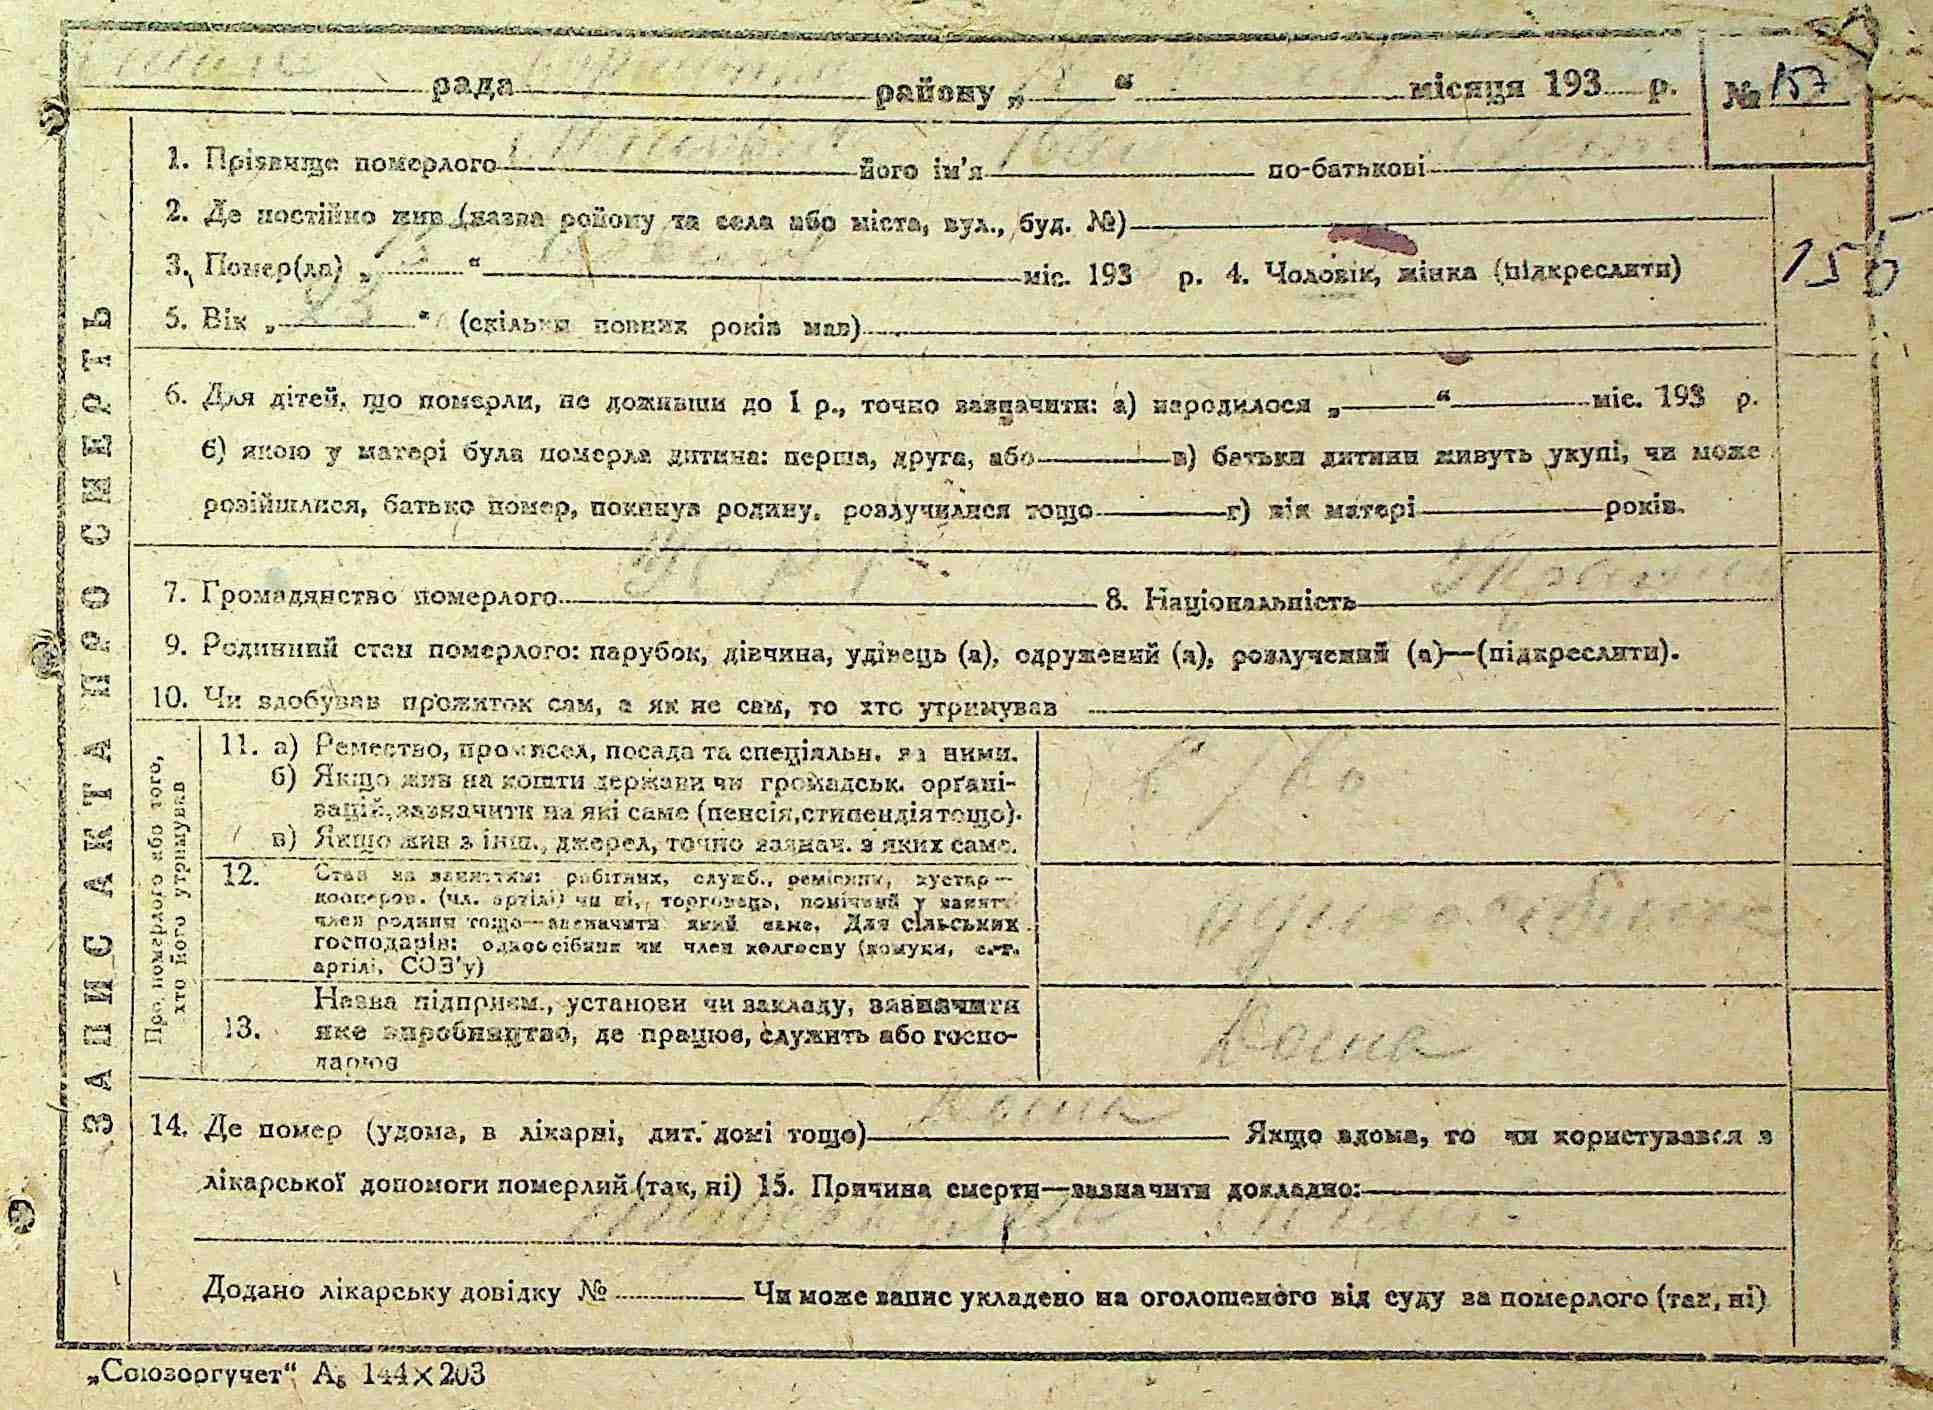 рада району „ “ місяця 193 р. № 157
1. Прізвище померлого його ім'я по-батькові
2. Де постійно жив (назва району та села або міста, вул., буд. №)
3. Помер(ла) „ “ міс. 193 р. 4. Чоловік, жінка (підкреслити) 156
5. Вік „ 23 “ (скільки повних років мав)
6. Для дітей, що померли, не доживши до 1 р., точно зазначити: а) народилося „ “ міс. 193 р.
б) якою у матері була померла дитина: перша, друга, або в) батьки дитини живуть укупі, чи може
розійшлися, батько помер, покинув родину, розлучилися тощо г) вік матері років.
7. Громадянство померлого УСРР 8. Національність
9. Родинний стан померлого: парубок, дівчина, удівець (а), одружений (а), розлучений (а)—(підкреслити).
10. Чи здобував прожиток сам, а як не сам, то хто утримував
ЗАПИС АКТА ПРО СМЕРТЬ
Про померлого або того,
хто його утримував
11. а) Ремество, промисел, посада та спеціяльн. за ними.
б) Якщо жив на кошти держави чи громадськ. орґані-
зацій, зазначити на які саме (пенсія, стипендія тощо).
в) Якщо жив з інш., джерел, точно зазнач. з яких саме.
с/го
12. Стан за заняттям: робітник, служб., ремісник, кустар—
кооперов. (чл. артілі) чи ні, торговець, помічний у занятті
член родини тощо—зазначити який саме. Для сільських
господарів: одноосібник чи член колгоспу (комуни, с.-г.
артілі, СОЗ'у)
одноосібник
13. Назва підприєм., установи чи закладу, зазначити
яке виробництво, де працює, служить або госпо-
дарює
Дома
14. Де помер (удома, в лікарні, дит. домі тощо) Дома Якщо вдома, то чи користувався з
лікарської допомоги померлий (так, ні) 15. Причина смерти—зазначити докладно:
туберкульоз
Додано лікарську довідку № Чи може запис укладено на оголошеного від суду за померлого (так, ні)
„Союзоргучет“ А₅ 144×203